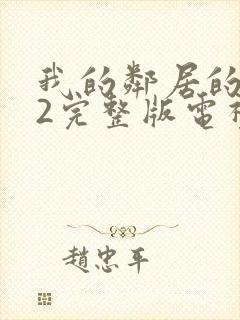 我的鄰居的
2完整版電
趙忠平